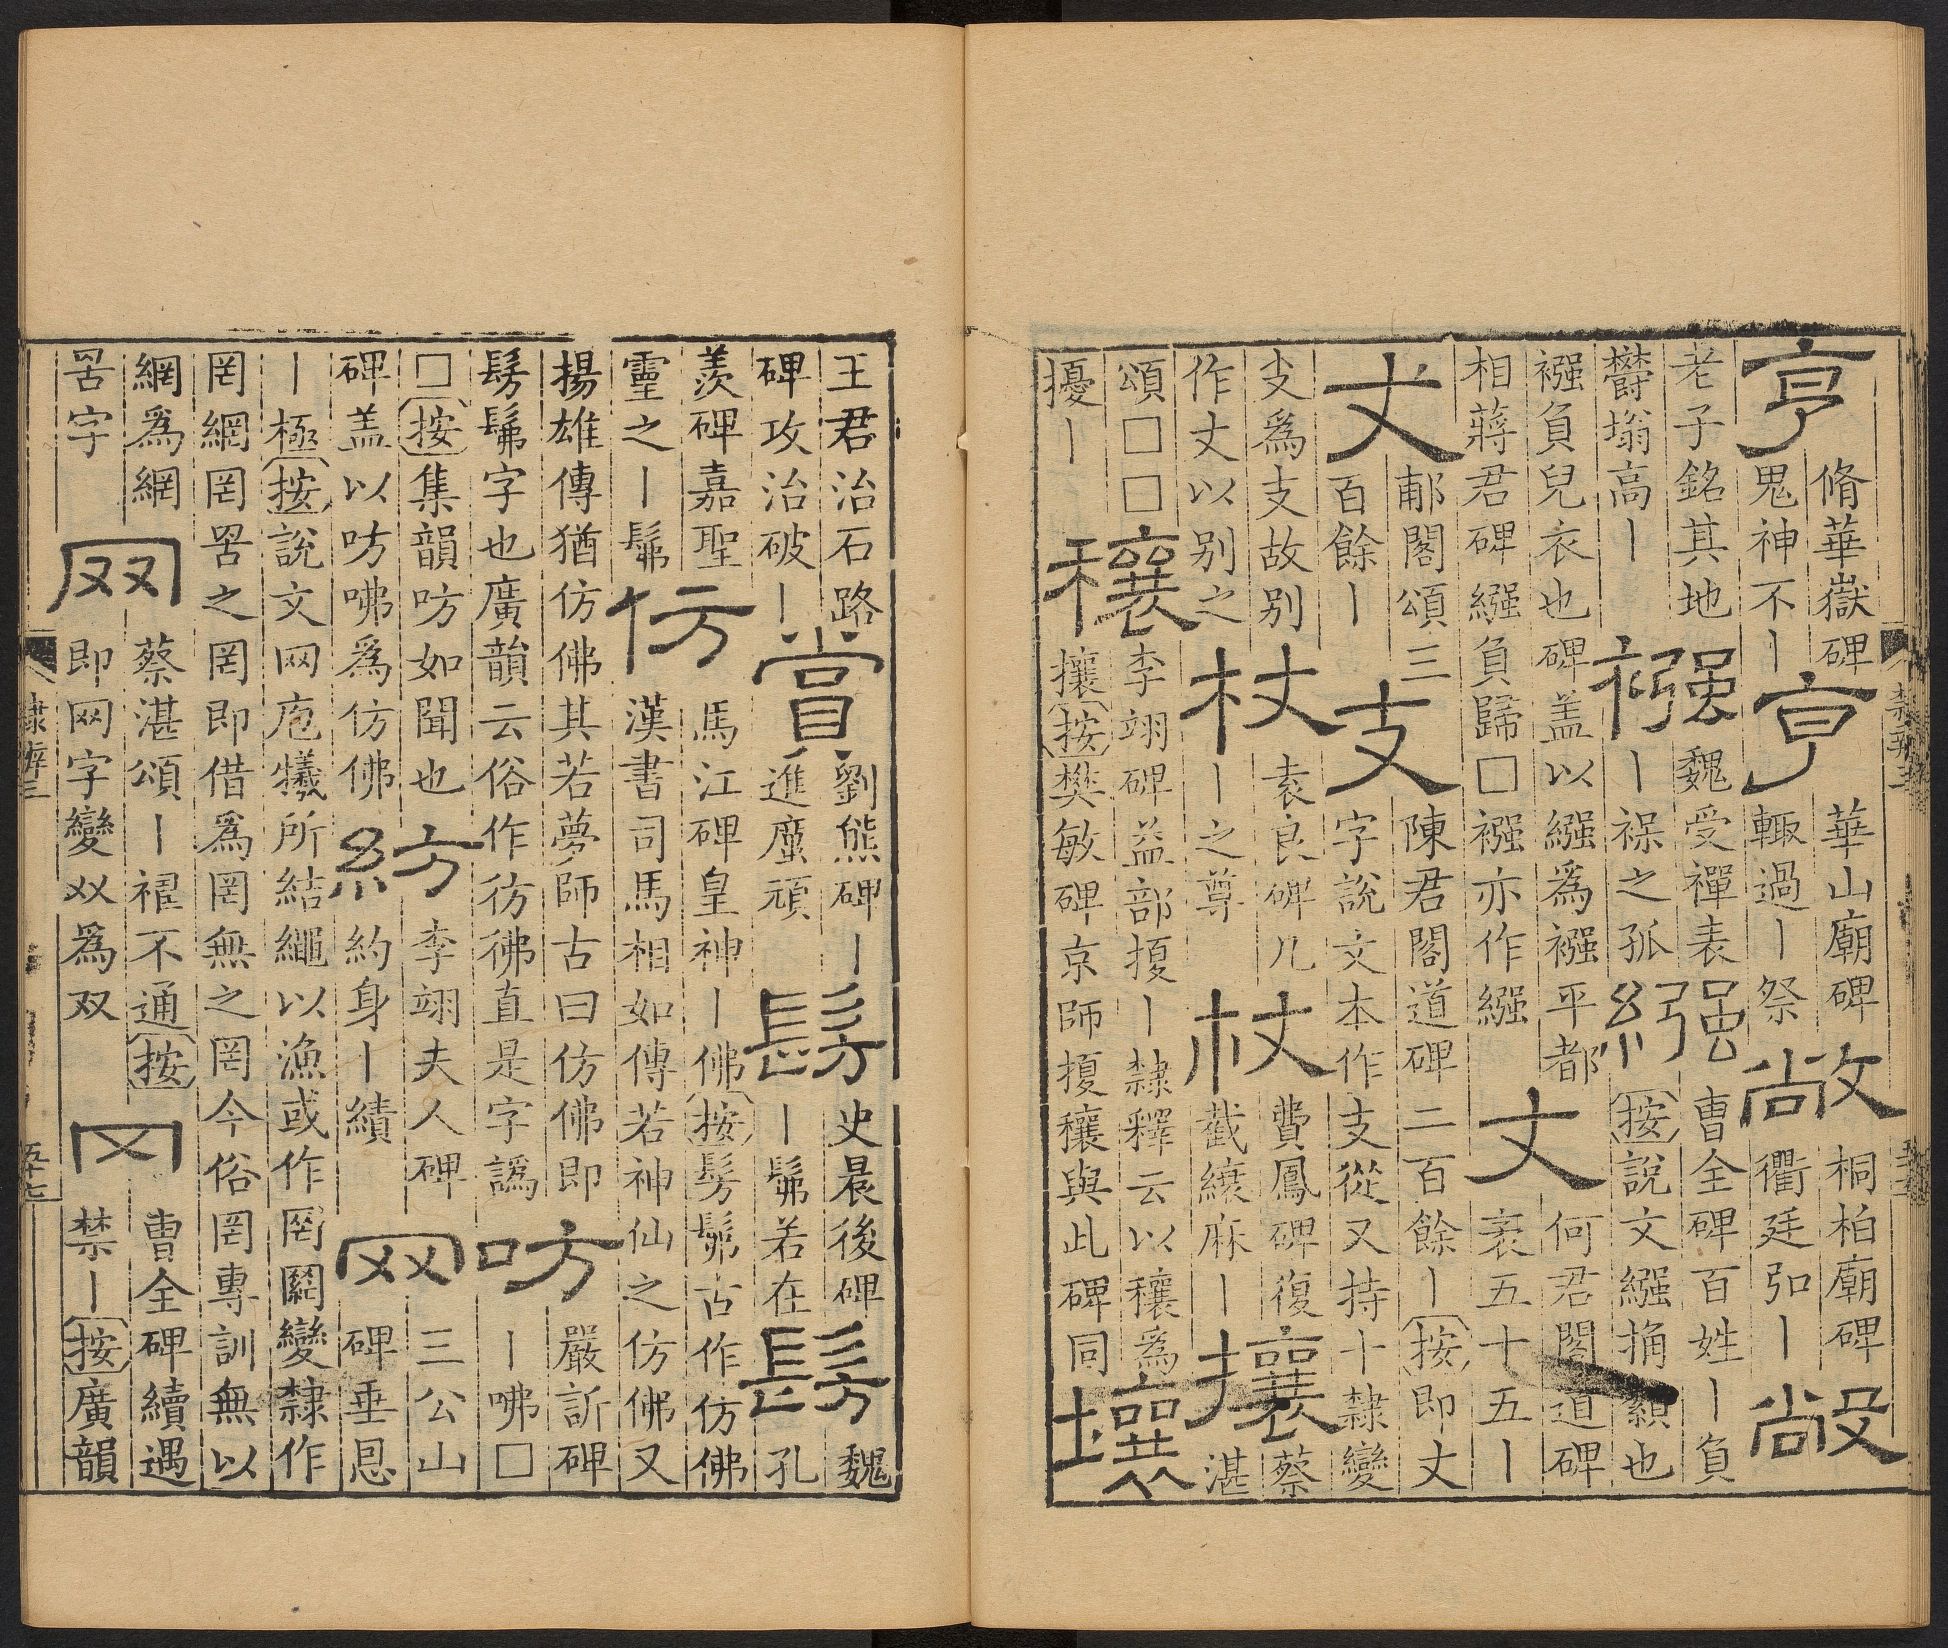 亨 脩華嶽碑
鬼神不｜
亨 華山廟碑
輙過｜祭
敞 桐柏廟碑
衢廷弘｜
敞
老子銘其地
鬱塕高｜
襁 魏受禪表
｜褓之孤
繈 曹全碑百姓｜負
按說文繈觕纇也
襁負兒衣也碑盖以繈爲襁平都
相蔣君碑繈負歸□襁亦作繈
丈 何君閣道碑
袤五十五｜
丈 郙閣頌三
百餘｜
支 陳君閣道碑二百餘｜按即丈
字說文本作支從又持十隸變
支爲支故别
作丈以别之
杖 袁良碑几
｜之尊
杖 費鳳碑復
截縗麻｜
攘 蔡
湛
頌□□
擾｜
穰 李翊碑益部擾｜隸釋云以穰爲
攘按樊敏碑京師擾穰與此碑同
壤
王君治石路
碑攻治破｜
甞 劉熊碑｜
進廑頑
髣 史晨後碑
｜髴若在
髣 魏
孔
羨碑嘉聖
靈之｜髴
仿 馬江碑皇神｜佛按髣髴古作仿佛
漢書司馬相如傳若神仙之仿佛又
揚雄傳猶仿佛其若夢師古曰仿佛即
髣髴字也廣韻云俗作彷彿直是字譌
㕫 嚴訢碑
｜咈□
□按集韻㕫如聞也
碑盖以㕫咈爲仿佛
紡 李翊夫人碑
約身｜績
网 三公山
碑垂恩
｜極按說文网庖犧所結繩以漁或作罔䍏變隸作
罔網罔罟之罔即借爲罔無之罔今俗罔專訓無以
網爲網
罟字
网 蔡湛頌｜不通按
即网字變㸚爲双
冈 曹全碑續遇
禁｜按廣韻
隸辨三
五十七